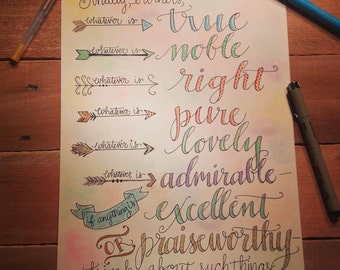 Finally, brothers,
whatever is true
whatever is noble
whatever is right
whatever is pure
whatever is lovely
whatever is admirable-
if anything is excellent
OR praiseworthy
think about such things